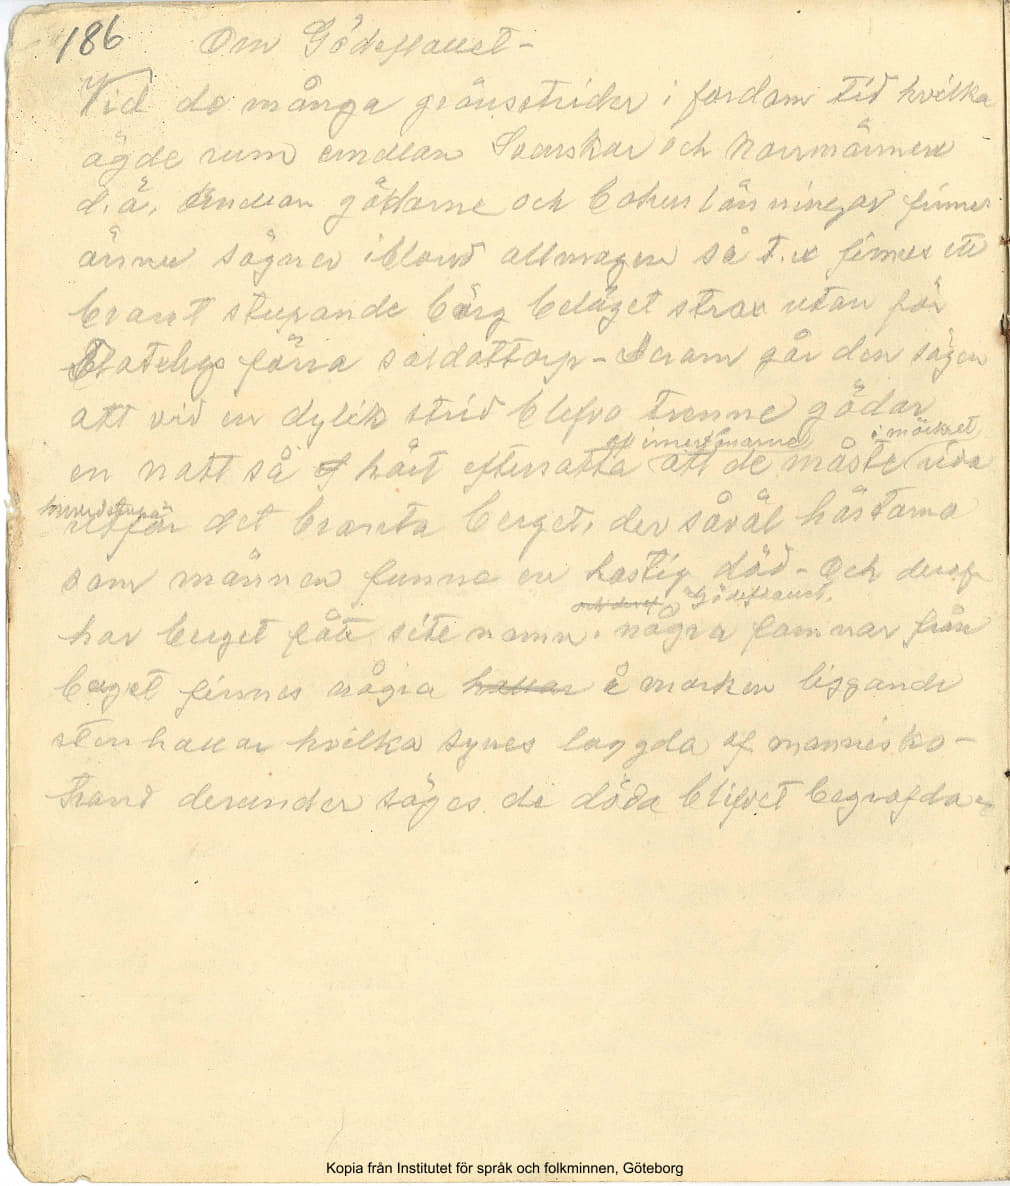 186 Om Gödeflauet -
Vid de många gränsstrider i fordom tid hvilka
ägde rum emellan Svenskar och Norrmännen
d.ä. Emellan götarne och bohuslänningar finnes
ännu sägner ibland allmogen så t.ex finnes ett
brant stupande bärg beläget strax utan för
förra soldattorp - derom går den sägen
att vid en dylik strid blefvo trenne gödar
af innevånarne i mörkret
en natt så hårt eftersatta att de måste rida
huvudstupa
utför det branta berget, der såväl hästarna
som männen funno en hastig död - och deraf
och deraf "Gödeflauet"
har berget fåt sitt namn. några famnar från
berget finnes några hallar å marken liggande
stenhallar hvilka synes laggda af mannisko-
hand derunder säges de döda blifvet begrafda -
Kopia från Institutet för språk och folkminnen, Göteborg